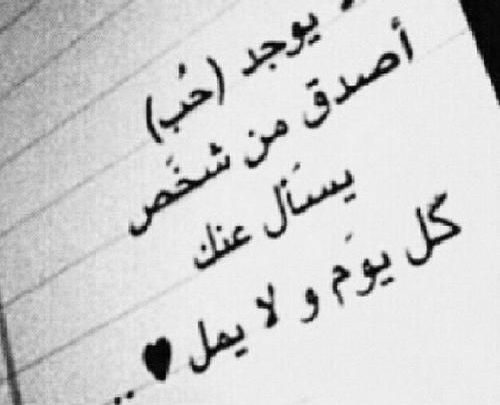 يوجد (حُب)
أصدق من شخَص
يسَأل عنك
كل يوَم و لا يمل ♥ ..